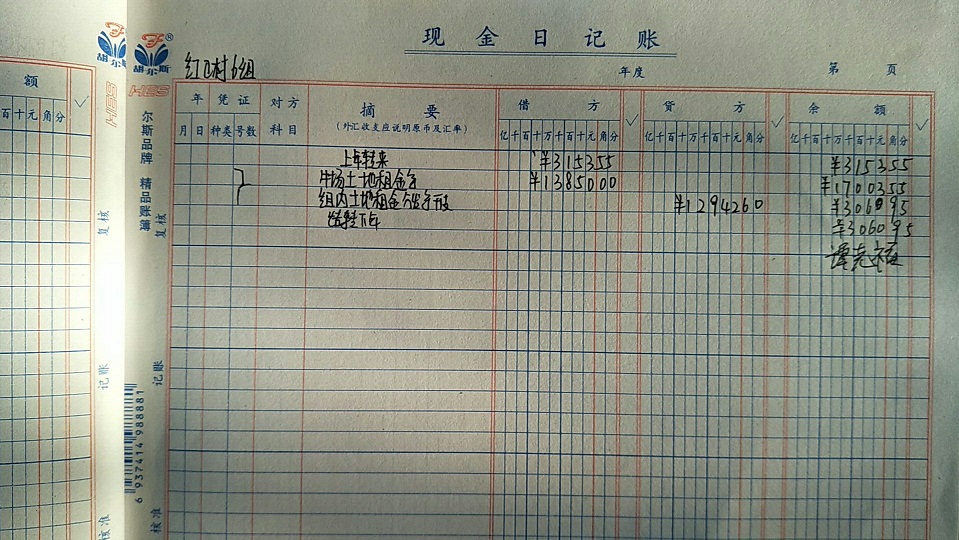 现金日记账
胡尔斯®
HES
红卫村6组
年度
第 页
年 凭证 对方 摘要 借方 √ 贷方 √ 余额 √
月 日 种类 号数 科目 (外汇收支应说明原币及汇率) 亿千百十万千百十元角分 亿千百十万千百十元角分 亿千百十万千百十元角分
上年转来 ¥315355 ¥315355
牛场土地租金 ¥1385000 ¥1700355
组内土地租金 ¥1294260 ¥306095
结转下年 ¥306095
额 √
百十元角分
胡尔斯
HES
尔斯品牌 精品账簿
复核
记账
核准
复核
记账
核准
6 937414 988881